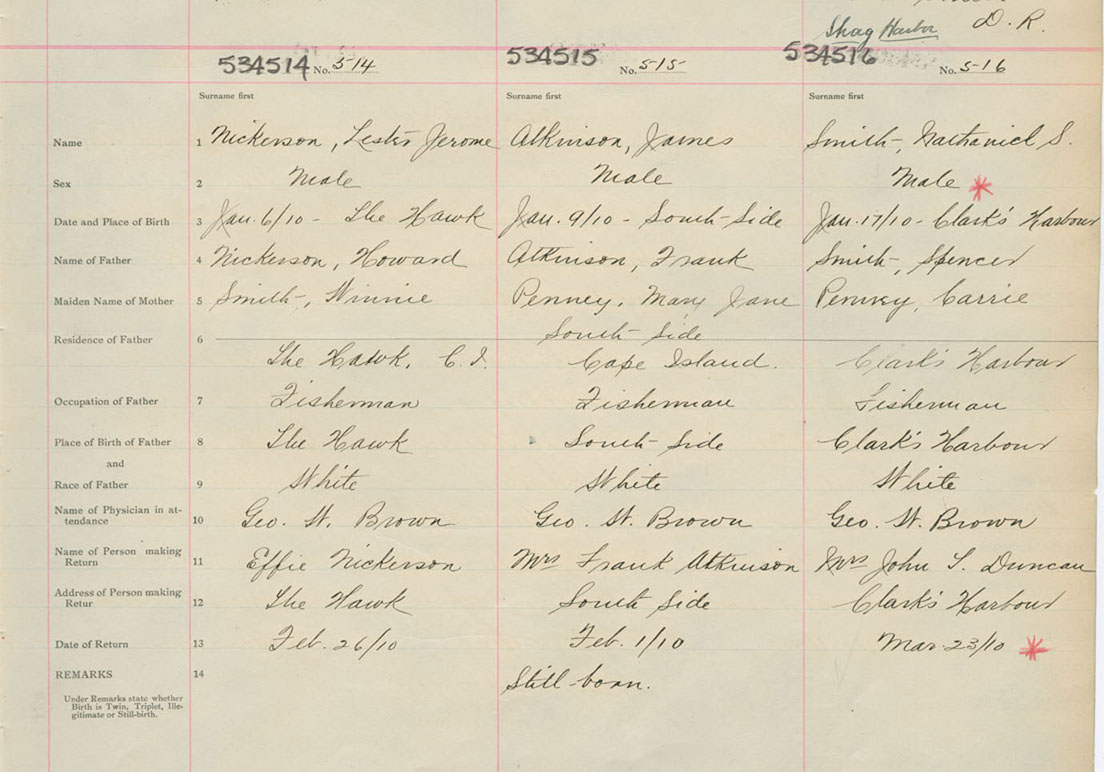 Shag Harbor D. R.
534514 No. 514 534515 No. 515 534516 No. 516
Surname first Surname first Surname first
Name 1 Nickerson, Lester Jerome Atkinson, James Smith, Nathaniel S.
Sex 2 Male Male Male
Date and Place of Birth 3 Jan. 6/10 - The Hawk Jan. 9/10 - South Side Jan. 17/10 - Clark's Harbour
Name of Father 4 Nickerson, Howard Atkinson, Frank Smith, Spencer
Maiden Name of Mother 5 Smith, Winnie Penney, Mary Jane Penney, Carrie
South Side
Residence of Father 6
The Hawk, C. I. Cape Island. Clark's Harbour
Occupation of Father 7 Fisherman Fisherman Fisherman
Place of Birth of Father 8 The Hawk South Side Clark's Harbour
and
Race of Father 9 White White White
Name of Physician in at-
tendance 10 Geo. W. Brown Geo. W. Brown Geo. W. Brown
Name of Person making
Return 11 Effie Nickerson Mrs Frank Atkinson Mrs John T. Duncan
Address of Person making
Retur 12 The Hawk South Side Clark's Harbour
Date of Return 13 Feb. 26/10 Feb. 1/10 Mar. 23/10
REMARKS 14 Still-born.
Under Remarks state whether
Birth is Twin, Triplet, Ille-
gitimate or Still-birth.